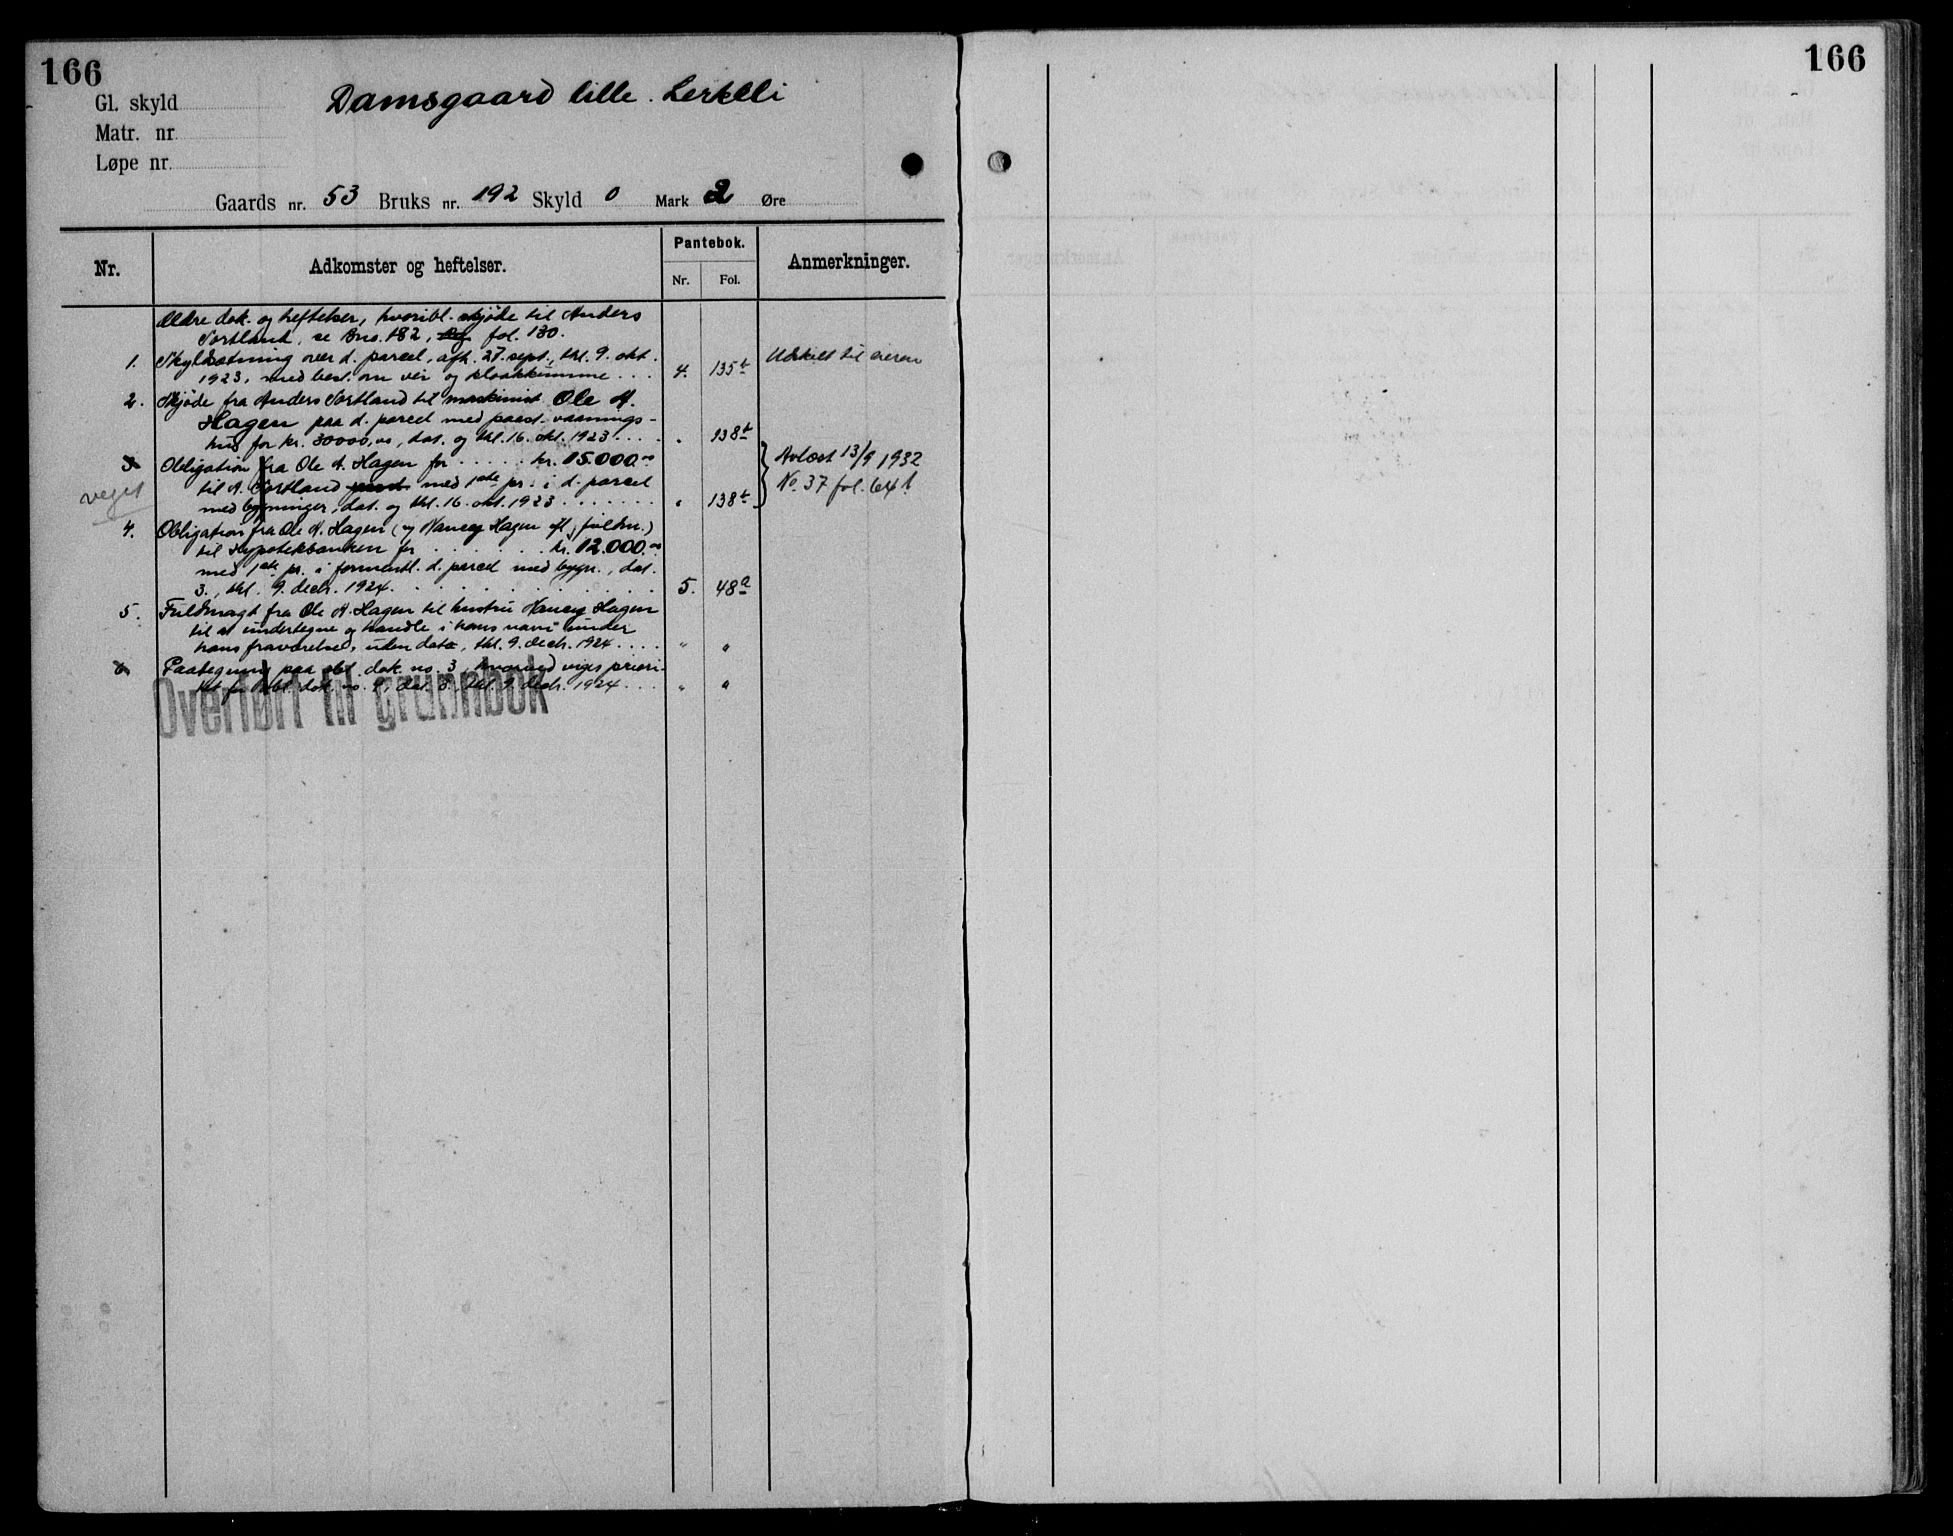 166
Gl. skyld
Damsgaard lille. Lerkeli
Matr. nr.
Løpe nr.
Gaards nr. 53 Bruks nr. 192 Skyld 0 Mark 2 Øre
Nr. Adkomster og heftelser. Pantebok. Anmerkninger.
Nr. Fol.
Ældre dok. og heftelser, hvoribl. skjøde til Anders
Sortland, se Bno. 182, fol. 130.
1. Skyldsætning over d. parcel, afh. 27. sept., thl. 9. okt. Utskilt til eieren
1923, med best. om vei og kloakkumme . . . 4. 135 b
2. Skjøde fra Anders Sortland til maskinist Ole A.
Hagen paa d. parcel med paast. vaanings-
hus for kr. 30000,00, dat. og thl. 16. okt. 1923 . . . . " 138 b
3. Obligation fra Ole A. Hagen for . . . . . kr. 15.000.00 Avlæst 13/9 1932
til A. Sortland med 1ste pr. i d. parcel No. 37 fol. 64 b
veget
med bygninger, dat. og thl. 16. okt. 1923 . . . . . . . " 138 b
4. Obligation fra Ole A. Hagen (v/ Nancy Hagen efl. fuldm.)
til Hypotekbanken for . . . . . . . kr. 12.000.00
med 1ste pr. i formentl. d. parcel med bygn., dat.
3., thl. 9. decbr. 1924. . . . . . . . . . . 5. 48 a
5. Fuldmagt fra Ole A. Hagen til hustru Nancy Hagen
til at undertegne og handle i hans navn under
hans fraværelse, uden dato, thl. 9. decbr. 1924 . . . . " "
6. Paategning paa obl. dok. no. 3, hvorved viges priori-
tet for obl. dok. no. 4, dat. 3., thl. 9. decbr. 1924 . . . " "
Overført til grunnbok
166